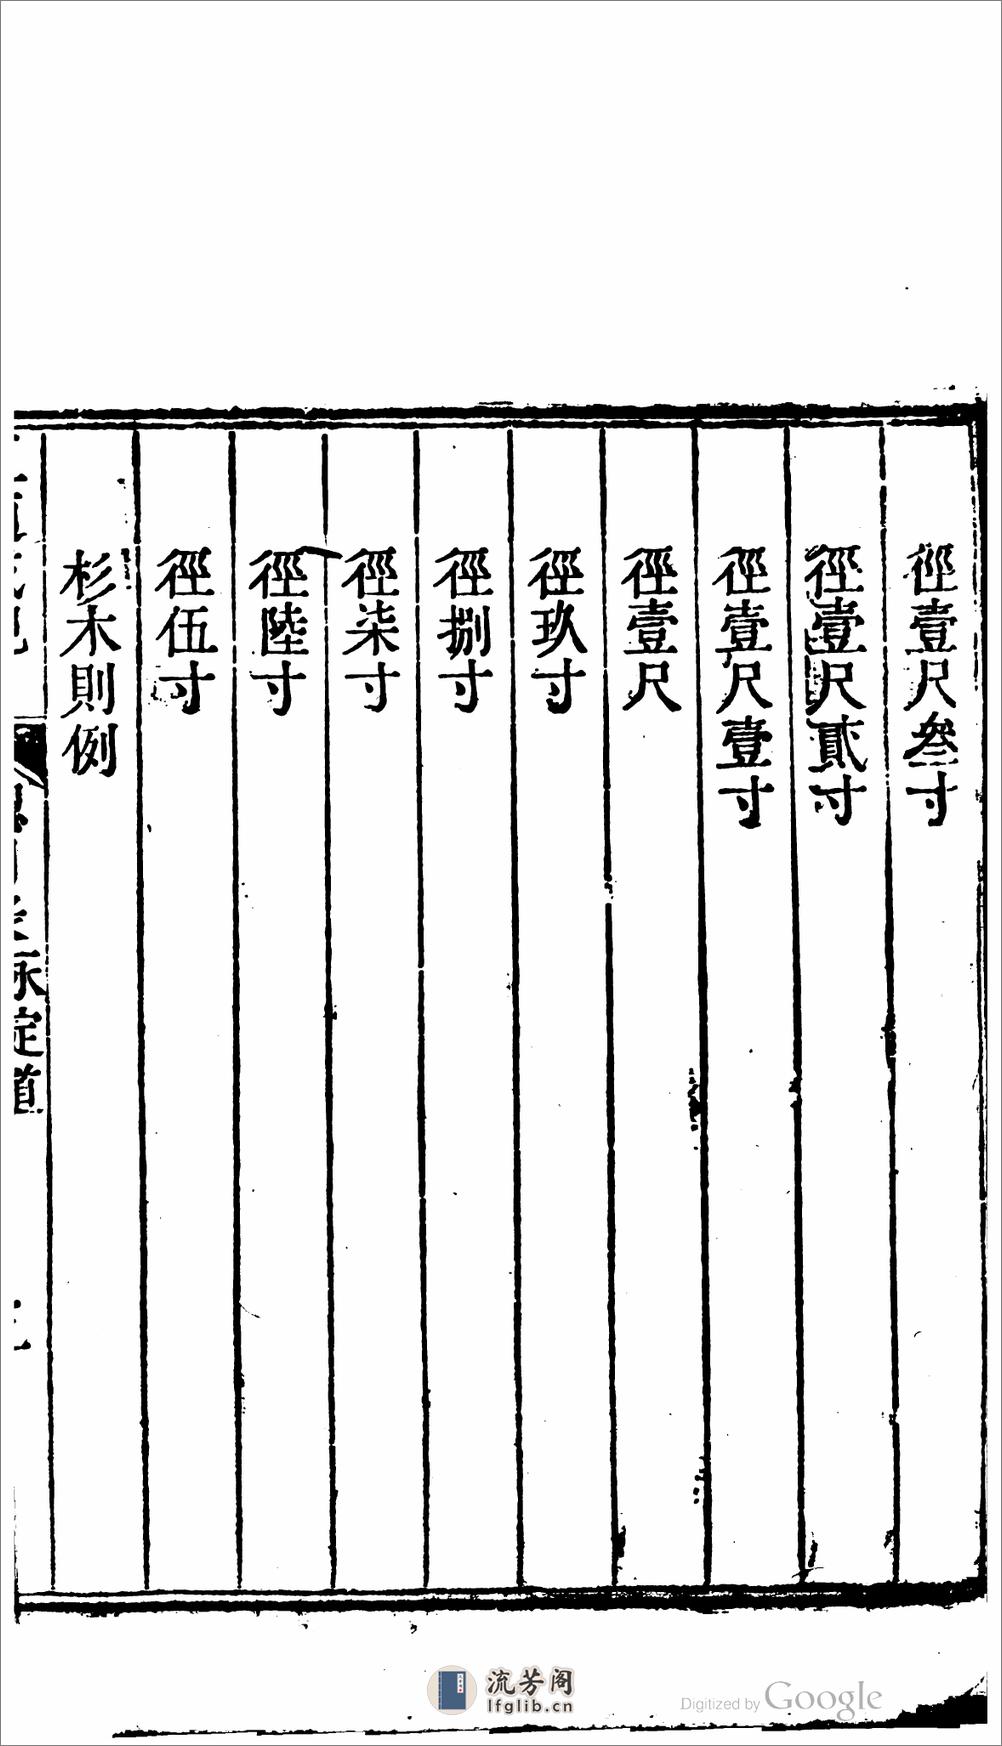 徑壹尺叄寸
徑壹尺貳寸
徑壹尺壹寸
徑壹尺
徑玖寸
徑捌寸
徑柒寸
徑陸寸
徑伍寸
杉木則例
永定道
流芳阁
lfglib.cn
Digitized by Google